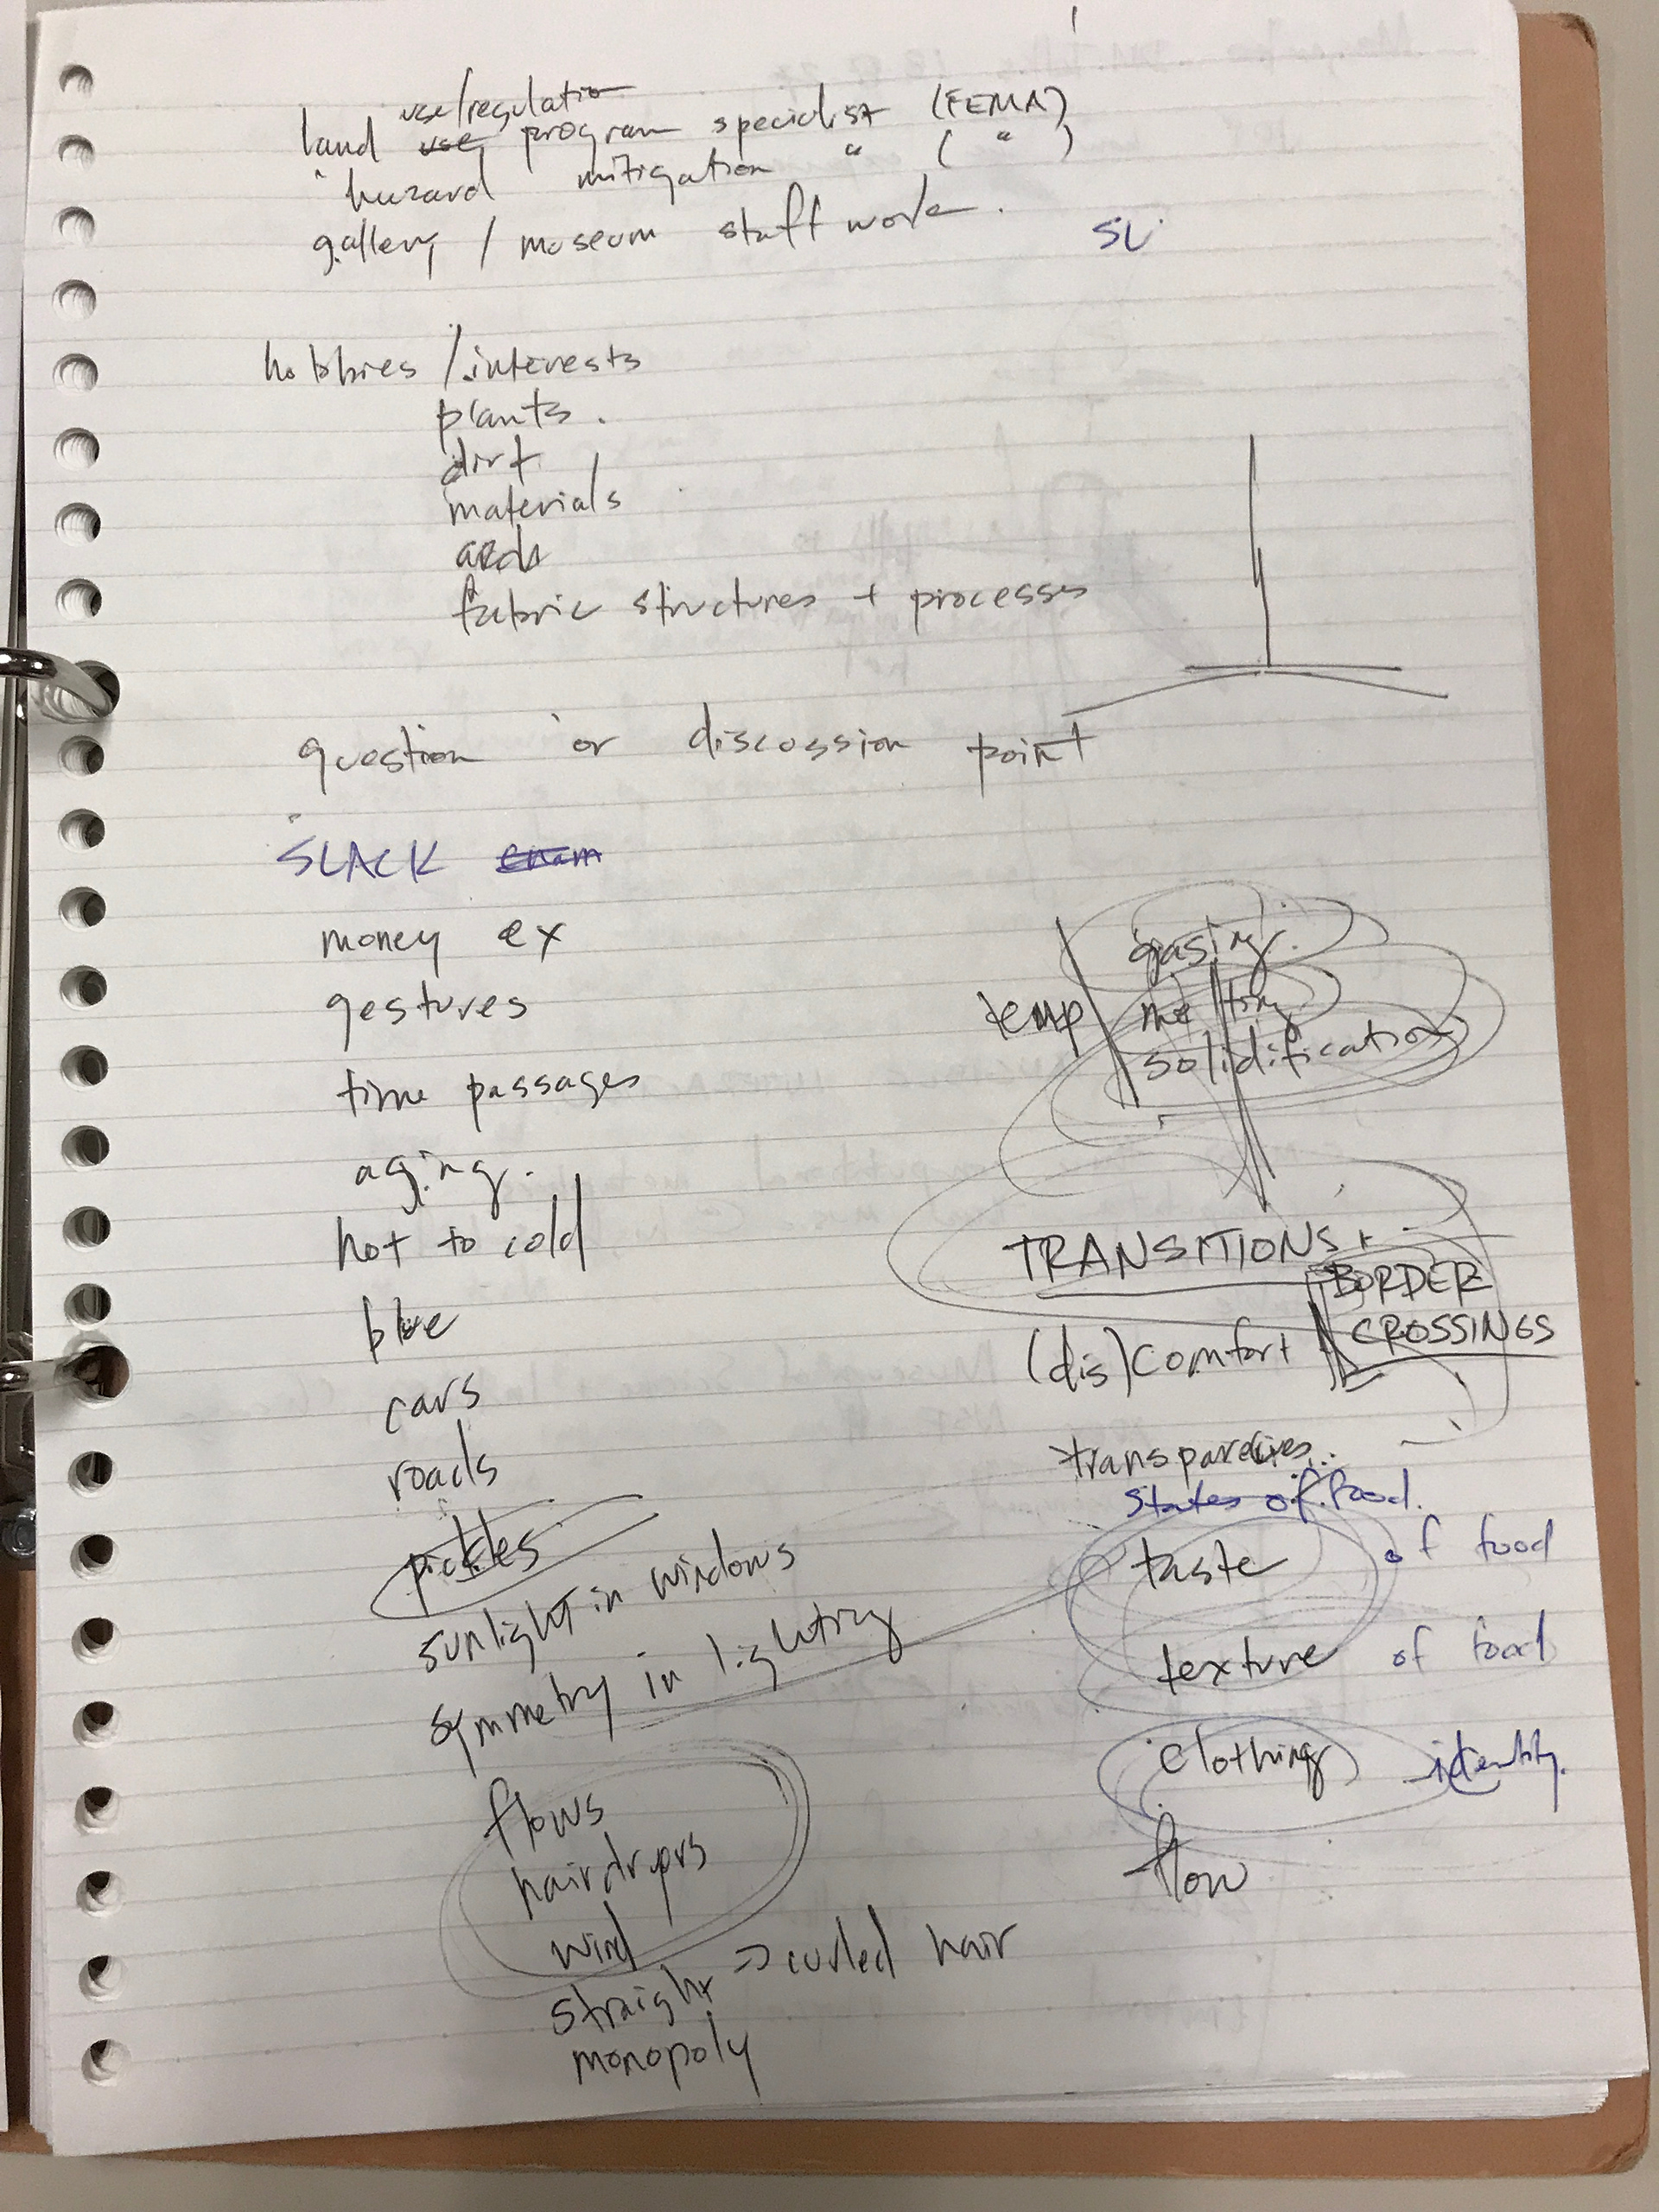 use/regulation
land use program specialist (FEMA)
" hazard mitigation " ( " )
gallery / museum staff work.
SL
hobbies / interests
plants.
dirt
materials
fabric structures + processes
question or discussion point
SLACK
money ex
gestures
time passages
aging.
hot to cold
blue
cars
roads
pickles
sunlight in windows
symmetry in lighting
flows
hairdryers
wind
straight → curled hair
monopoly
temp
gasing.
melting
solidification
TRANSITIONS +
BORDER
CROSSINGS
(dis)comfort
states of food.
taste of food
texture of food
clothing identity.
flow